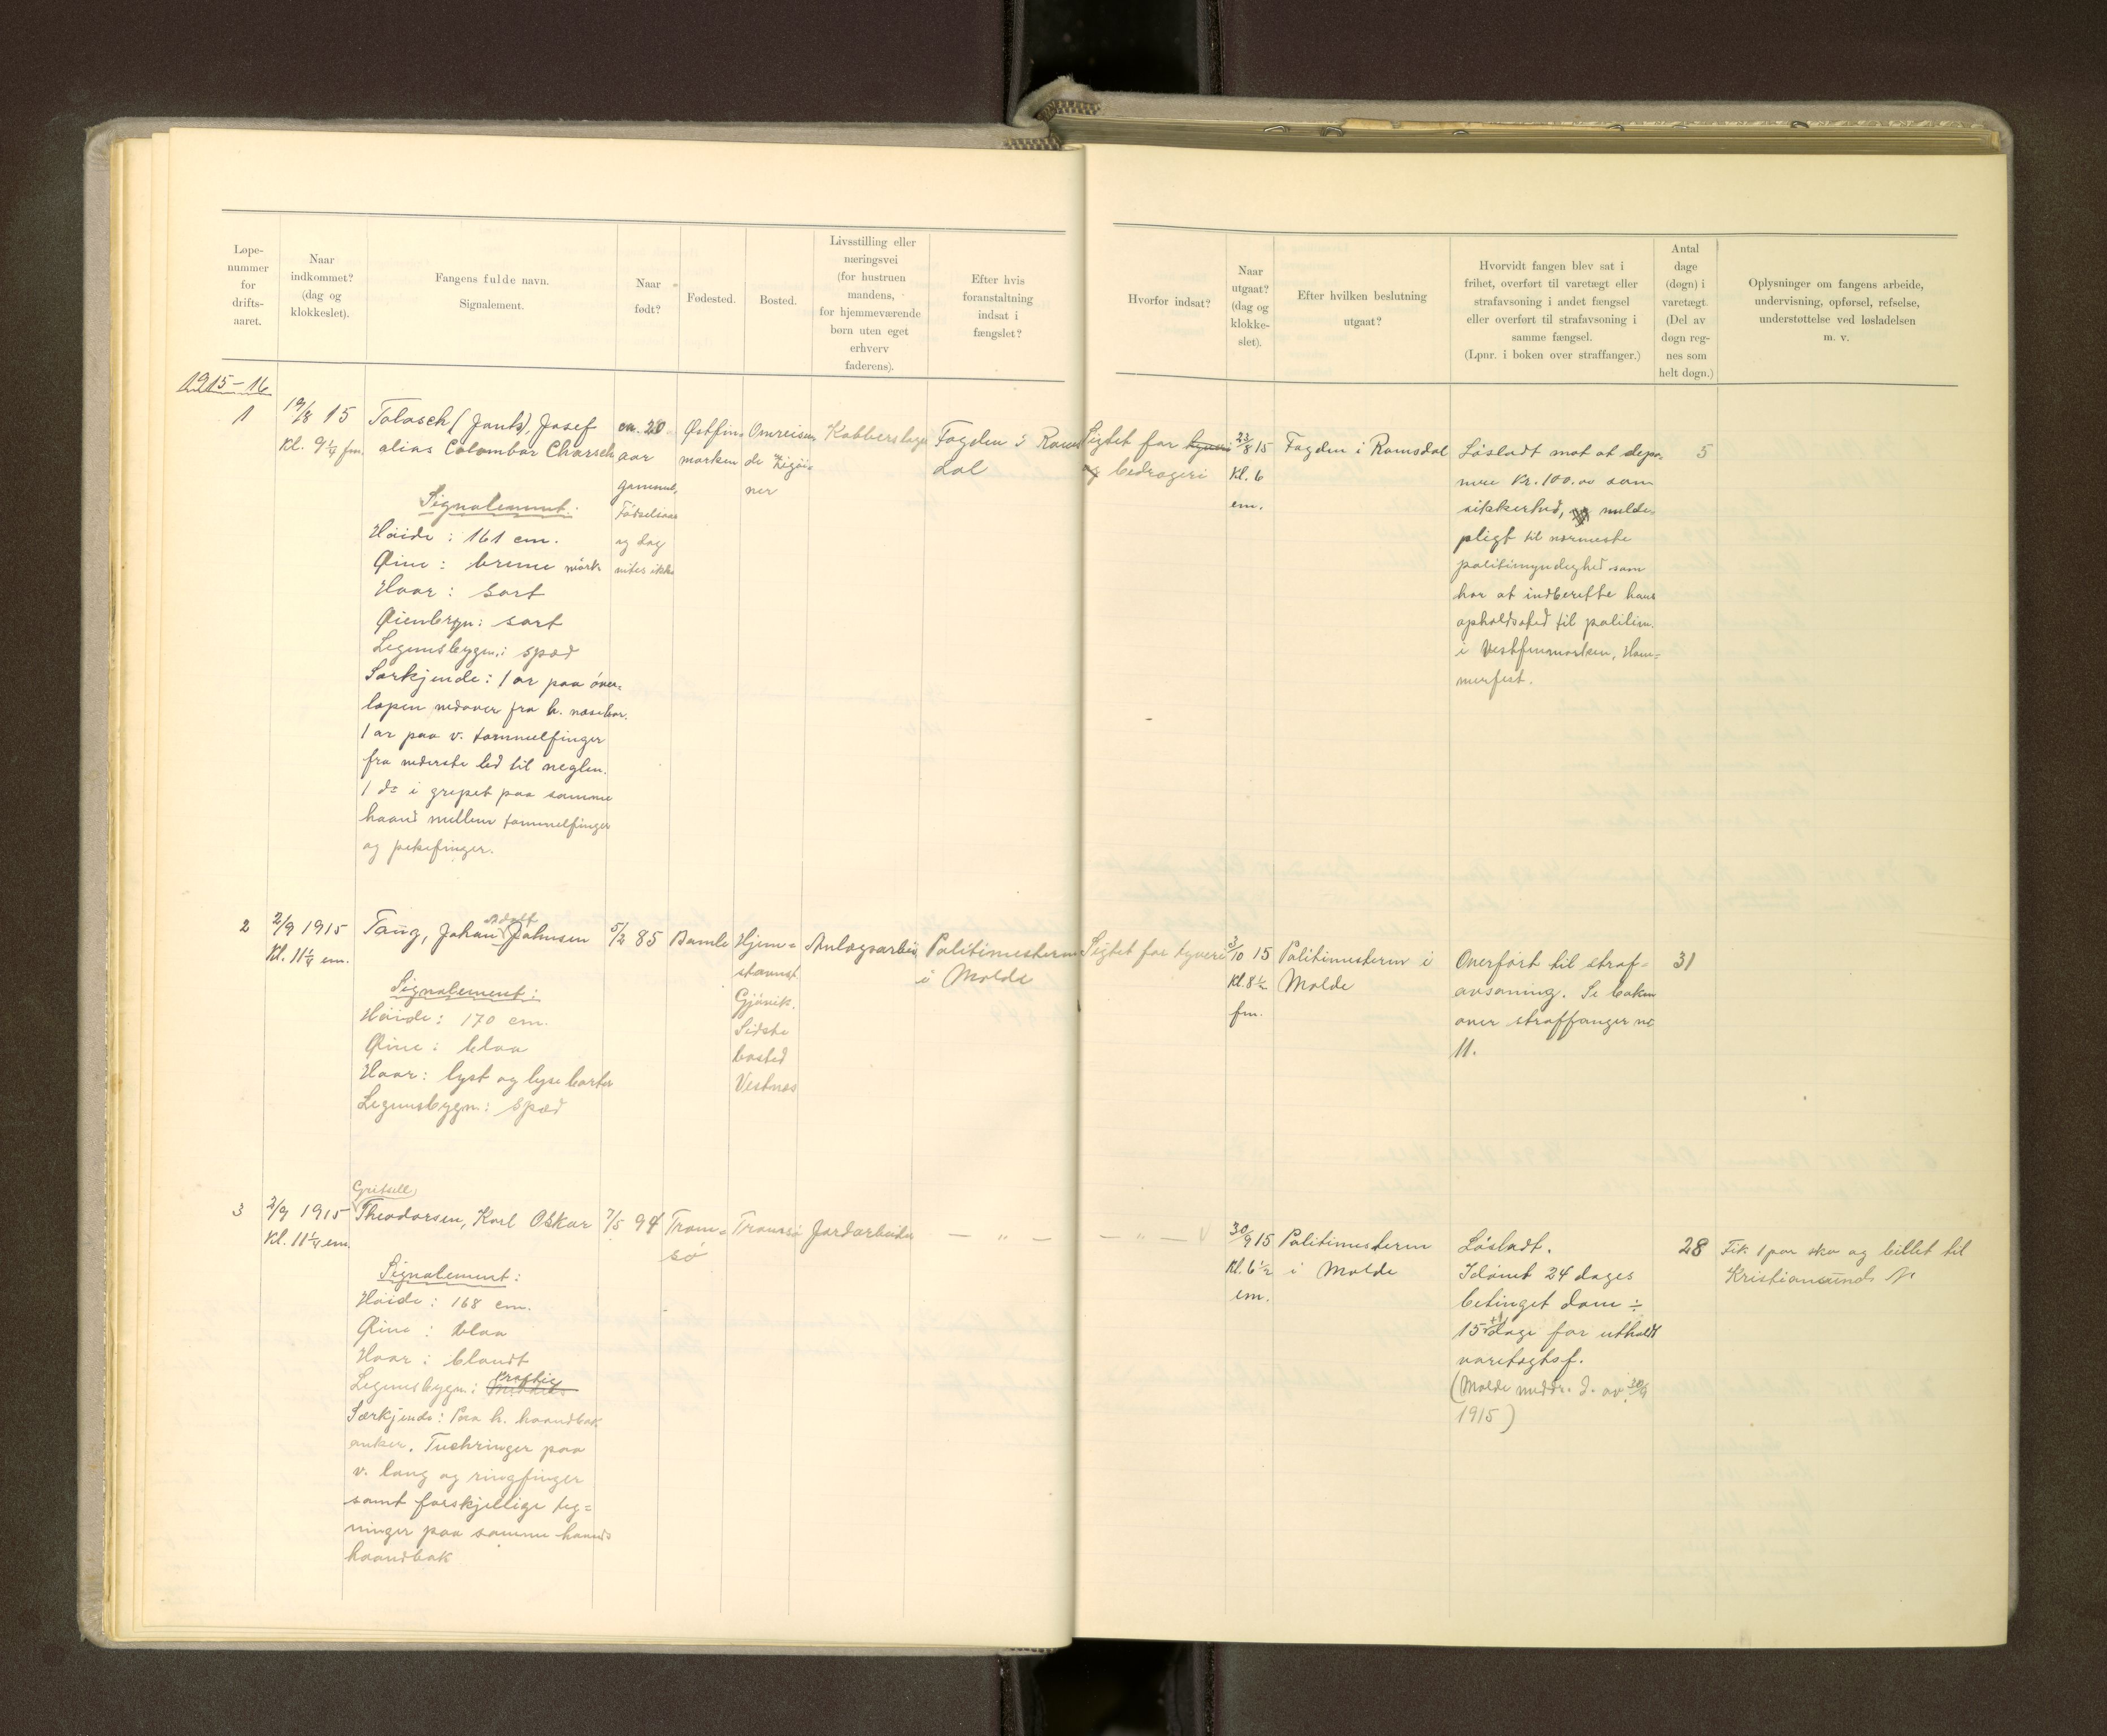 Løpe-
nummer
for
drifts-
aaret.
Naar
indkommet?
(dag og
klokkeslet).
Fangens fulde navn.
Signalement.
Naar
født?
Fødested.
Bosted.
Livsstilling eller
næringsvei
(for hustruen
mandens,
for hjemmeværende
børn uten eget
erhverv
faderens).
Efter hvis
foranstaltning
indsat i
fængslet?
Hvorfor indsat?
Naar
utgaat?
(dag og
klokke-
slet).
Efter hvilken beslutning
utgaat?
Hvorvidt fangen blev sat i
frihet, overført til varetægt eller
strafavsoning i andet fængsel
eller overført til strafavsoning i
samme fængsel.
(Lpnr. i boken over straffanger.)
Antal
dage
(døgn) i
varetægt.
(Del av
døgn reg-
nes som
helt døgn.)
Oplysninger om fangens arbeide,
undervisning, opførsel, refselse,
understøttelse ved løsladelsen
m. v.
1915-16
1
19/8 15
Kl. 9 1/4 fm.
Josef
alias Colombar
Signalement:
Høide: 161 cm.
Øine: brune mørk
Haar: sort
Øienbryn: sort
Legemsbygn.: spæd
Særkjende: 1 ar paa over-
læpen nedover fra h. næsebor.
1 ar paa v. tommelfinger
fra nederste led til neglen.
1 do i grepet paa samme
haand mellem tommelfinger
og pekefinger.
ca. 20
aar
gammel.
Fødselsaar
og dag
vites ikke
Østfin-
marken
Omreisen-
de Zigøi-
ner
Kobberslager
Fogden i Roms-
dal
Sigtet for tyveri
og bedrageri
23/8 15
Kl. 6
em.
Fogden i Romsdal
Løsladt mot at depo-
nere Kr. 100.00 som
sikkerhed, melde-
pligt til nærmeste
politimyndighed som
har at indberette hans
opholdssted til politim.
i Vestfinmarken, Ham-
merfest.
5
2
2/9 1915
Kl. 11 1/4 em.
Tang, Johan Adolf Johnsen
Signalement:
Høide: 170 cm.
Øine: blaa
Haar: lyst og lyse barter
Legemsbygn: spæd
5/2 85
Bamle
Hjem-
stavnst
Gjøvik.
Sidste
bosted
Vestnes
Anlægsarbeid
Politimesteren
i Molde
Sigtet for tyveri
3/10 15
Kl. 8 1/2
fm.
Politimesteren i
Molde
Overført til straf-
avsoning. Se boken
over straffanger no
11.
31
3
2/9 1915
Kl. 11 1/4 em.
Theodorsen, Karl Oskar
Signalement:
Høide: 168 cm.
Øine: blaa
Haar: blondt
Legemsbygn: Middels kraftig
Særkjende: Paa h. haandbak
anker. Tuschringer paa
v. lang og ringfinger
samt forskjellige teg-
ninger paa samme haands
haandbak
7/5 94
Trom-
sø
Tromsø
Jordarbeider
— „ —
— „ —
30/9 15
Kl. 6 1/2
em.
Politimesteren
i Molde
Løsladt.
Idømt 24 dages
betinget dom ÷
15 dage for utholdt
varetægtsf.
(Molde meddr. d. av 30/9
1915)
28
Fik 1 par sko og billet til
Kristiansund N